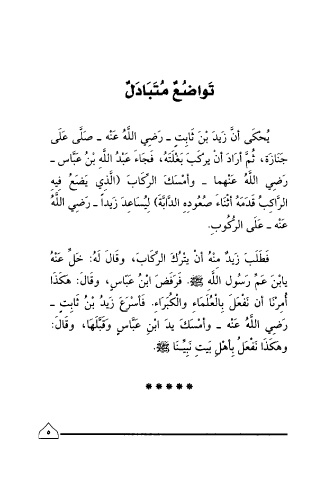 تَواضُعٌ مُتَبَادَلٌ
يُحْكَى أنَّ زَيدَ بْنَ ثَابِتٍ ـ رَضِيَ اللَّهُ عَنْه ـ صَلَّى عَلَى
جَنَازَة، ثُمَّ أرَادَ أنْ يرْكَبَ بَغْلَتَهُ، فَجَاءَ عَبْدُ اللَّهِ بْنُ عَبَّاس ـ
رَضِيَ اللَّهُ عَنْهما ـ وأمْسَكَ الرِّكَابَ (الَّذِي يَضَعُ فِيهِ
الرَّاكِبُ قَدَمَهُ أثْنَاءَ صُعُودِهِ الدَّابَّةَ) لِيُسَاعِدَ زَيداً ـ رَضِيَ اللَّهُ
عَنْه ـ عَلَى الرُّكُوبِ.
فَطَلَبَ زَيدٌ مِنهُ أنْ يتْرُكَ الرِّكَابَ، وقَالَ لَهُ: خَلِّ عَنْهُ
يابْنَ عَمِّ رَسُولِ اللَّهِ ﷺ. فَرَفَضَ ابْنُ عبَّاسٍ، وقَالَ: هَكَذَا
أُمِرْنَا أن نَفْعَلَ بِالْعُلَمَاءِ والْكُبَرَاءِ. فَأسْرَعَ زَيدُ بْنُ ثَابتٍ ـ
رَضِيَ اللَّهُ عَنْه ـ وأمْسَكَ يدَ ابْنِ عَبَّاسٍ وقَبَّلَهَا، وقَالَ:
وهكَذَا نَفْعَلُ بِأهْلِ بَيتِ نَبِيِّنَا ﷺ.
* * * * *
٥